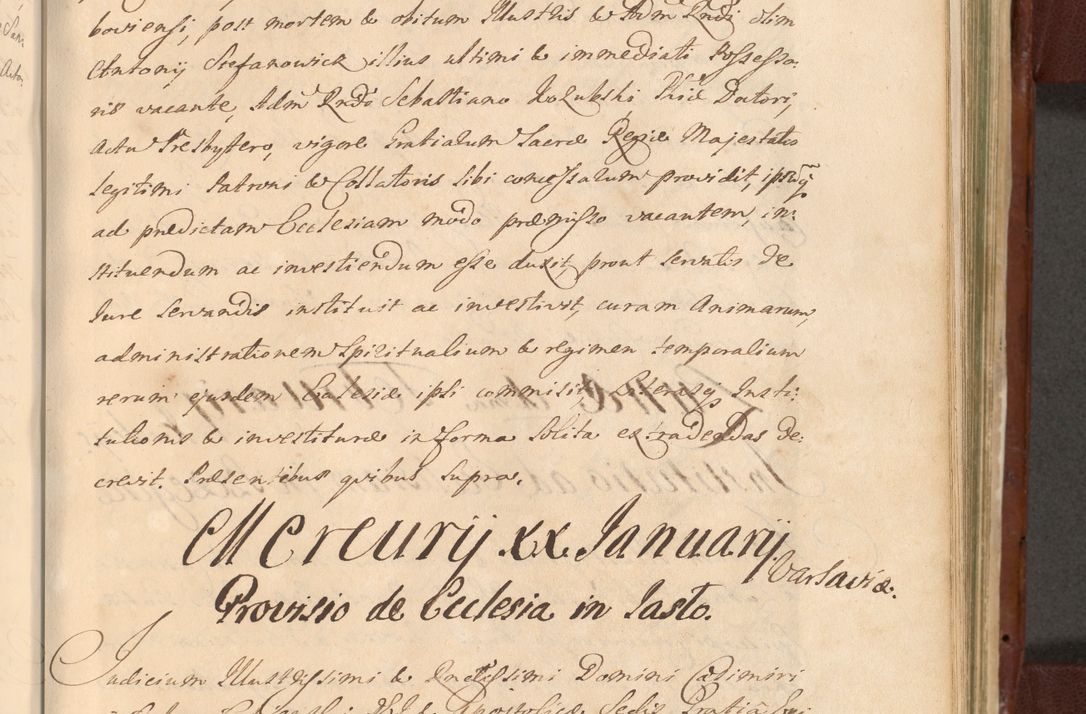 boviensi, post mortem & obitum Illustris & Adm Rndi olim
Antonij Stefanowicz illius ultimi & immediati Possesso:
ris vacante, Adm Rndo Sebastiano Kolubski Phiæ Doctori,
Actu Presbytero, vigore Gratialum Sacræ Regiæ Majestatis
legitimi Patroni & Collatoris sibi concessalum providit, ipsumq;
ad prædictam Ecclesiam modo præmisso vacantem, in:
stituendum ac investiendum esse duxit, prout servatis de
Jure servandis instituit ac investivit, curam Animarum,
administrationem Spiritualium & regimen temporalium
rerum ejusdem Ecclesiæ ipsi commisit, Literasq; Insti:
tutionis & investituræ in forma solita extradendas de:
crevit. Præsentibus quibus supra.
Mercurij xx Januarij
Varsaviæ.
Provisio de Ecclesia in Jasło.
Judicium Illustrissimi & Rndissimi Domini Casimiri
Apostolicæ Sedis Gratia